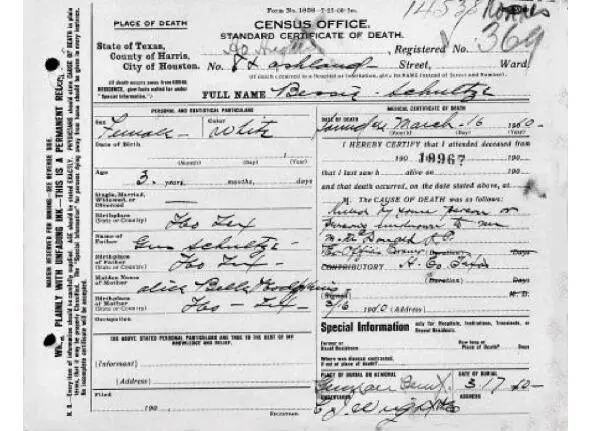 Form No. 1898
14538
PLACE OF DEATH
CENSUS OFFICE.
STANDARD CERTIFICATE OF DEATH.
State of Texas,
County of Harris,
City of Houston.
Heights
Registered No. 369
No. 8 & Ashland Street, Ward.
(If death occurred in a Hospital or Institution, give its NAME instead of Street and Number).
(If death occurs away from USUAL
RESIDENCE, give facts called for under
"Special Information.")
FULL NAME Bessie Schultze
PERSONAL AND STATISTICAL PARTICULARS
MEDICAL CERTIFICATE OF DEATH
Sex
Female
Color
White
DATE OF DEATH
March 16
(Month) (Day) (Year)
Date of Birth
(Month) (Day) (Year)
I HEREBY CERTIFY that I attended deceased from
190 10967 190
Age
3 years, months, days
that I last saw h alive on 190
and that death occurred, on the date stated above, at
M. The CAUSE OF DEATH was as follows:
Single, Married,
Widowed, or
Divorced
Killed by some person or
persons unknown to me
Birthplace
(State or Country)
Hou Tex
Name of
Father
Gus Schultze
Birthplace
of Father
(State or Country)
Hou Tex
CONTRIBUTORY
(Duration) Days
Maiden Name
of Mother
Alice Bell
(Signed) M. D.
3/16 1910 (Address)
Birthplace
of Mother
(State or Country)
Hou Tex
Occupation
Special Information only for Hospitals, Institutions, Transients, or
Recent Residents.
THE ABOVE STATED PERSONAL PARTICULARS ARE TRUE TO THE BEST OF MY
KNOWLEDGE AND BELIEF.
Former or
Usual Residence
How long at
Place of Death? Days
Where was disease contracted,
if not at place of death?
(Informant)
(Address)
PLACE OF BURIAL OR REMOVAL
DATE OF BURIAL
German Cemt
3 17 10
UNDERTAKER
ADDRESS
Wright
Filed
190
REGISTRAR
MARGIN RESERVED FOR BINDING—SEE REVERSE SIDE.
PLAINLY WITH UNFADING INK—THIS IS A PERMANENT RECORD
N. B.—Every item of information should be carefully supplied. AGE should be stated EXACTLY. PHYSICIANS should state CAUSE OF DEATH in plain
terms, that it may be properly Classified. The "Special Information" for persons dying away from home should be given in every instance.
No incomplete certificate will be accepted.